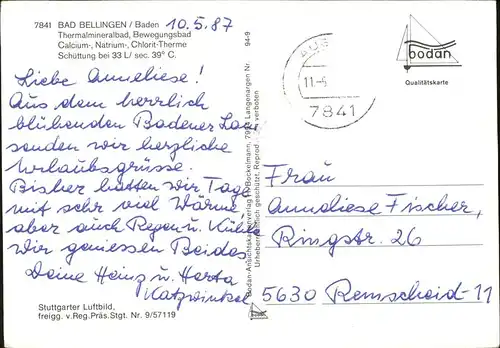 7841 BAD BELLINGEN / Baden
Thermalmineralbad, Bewegungsbad
Calcium-, Natrium-, Chlorit-Therme
Schüttung bei 33 L/ sec. 39° C.
10.5.87
Liebe Anneliese!
Aus dem herrlich
blühenden Badener Land
senden wir herzliche
Urlaubsgrüsse.
Bisher hatten wir Tage
mit sehr viel Wärme,
aber auch Regen u. Kühle
Wir geniessen Beides
Deine Heinz u. Herta
Katzwinkel
Stuttgarter Luftbild,
freigg. v.Reg.Präs.Stgt. Nr. 9/57119
94-9
Bodan-Ansichtskartenverlag Bockelmann, Langenargen
Urheberrechtlich geschützt. Reprod. verboten
11.-5
7841
bodan
Qualitätskarte
Frau
Anneliese Fischer,
Ringstr. 26
5630 Remscheid-11
bodan